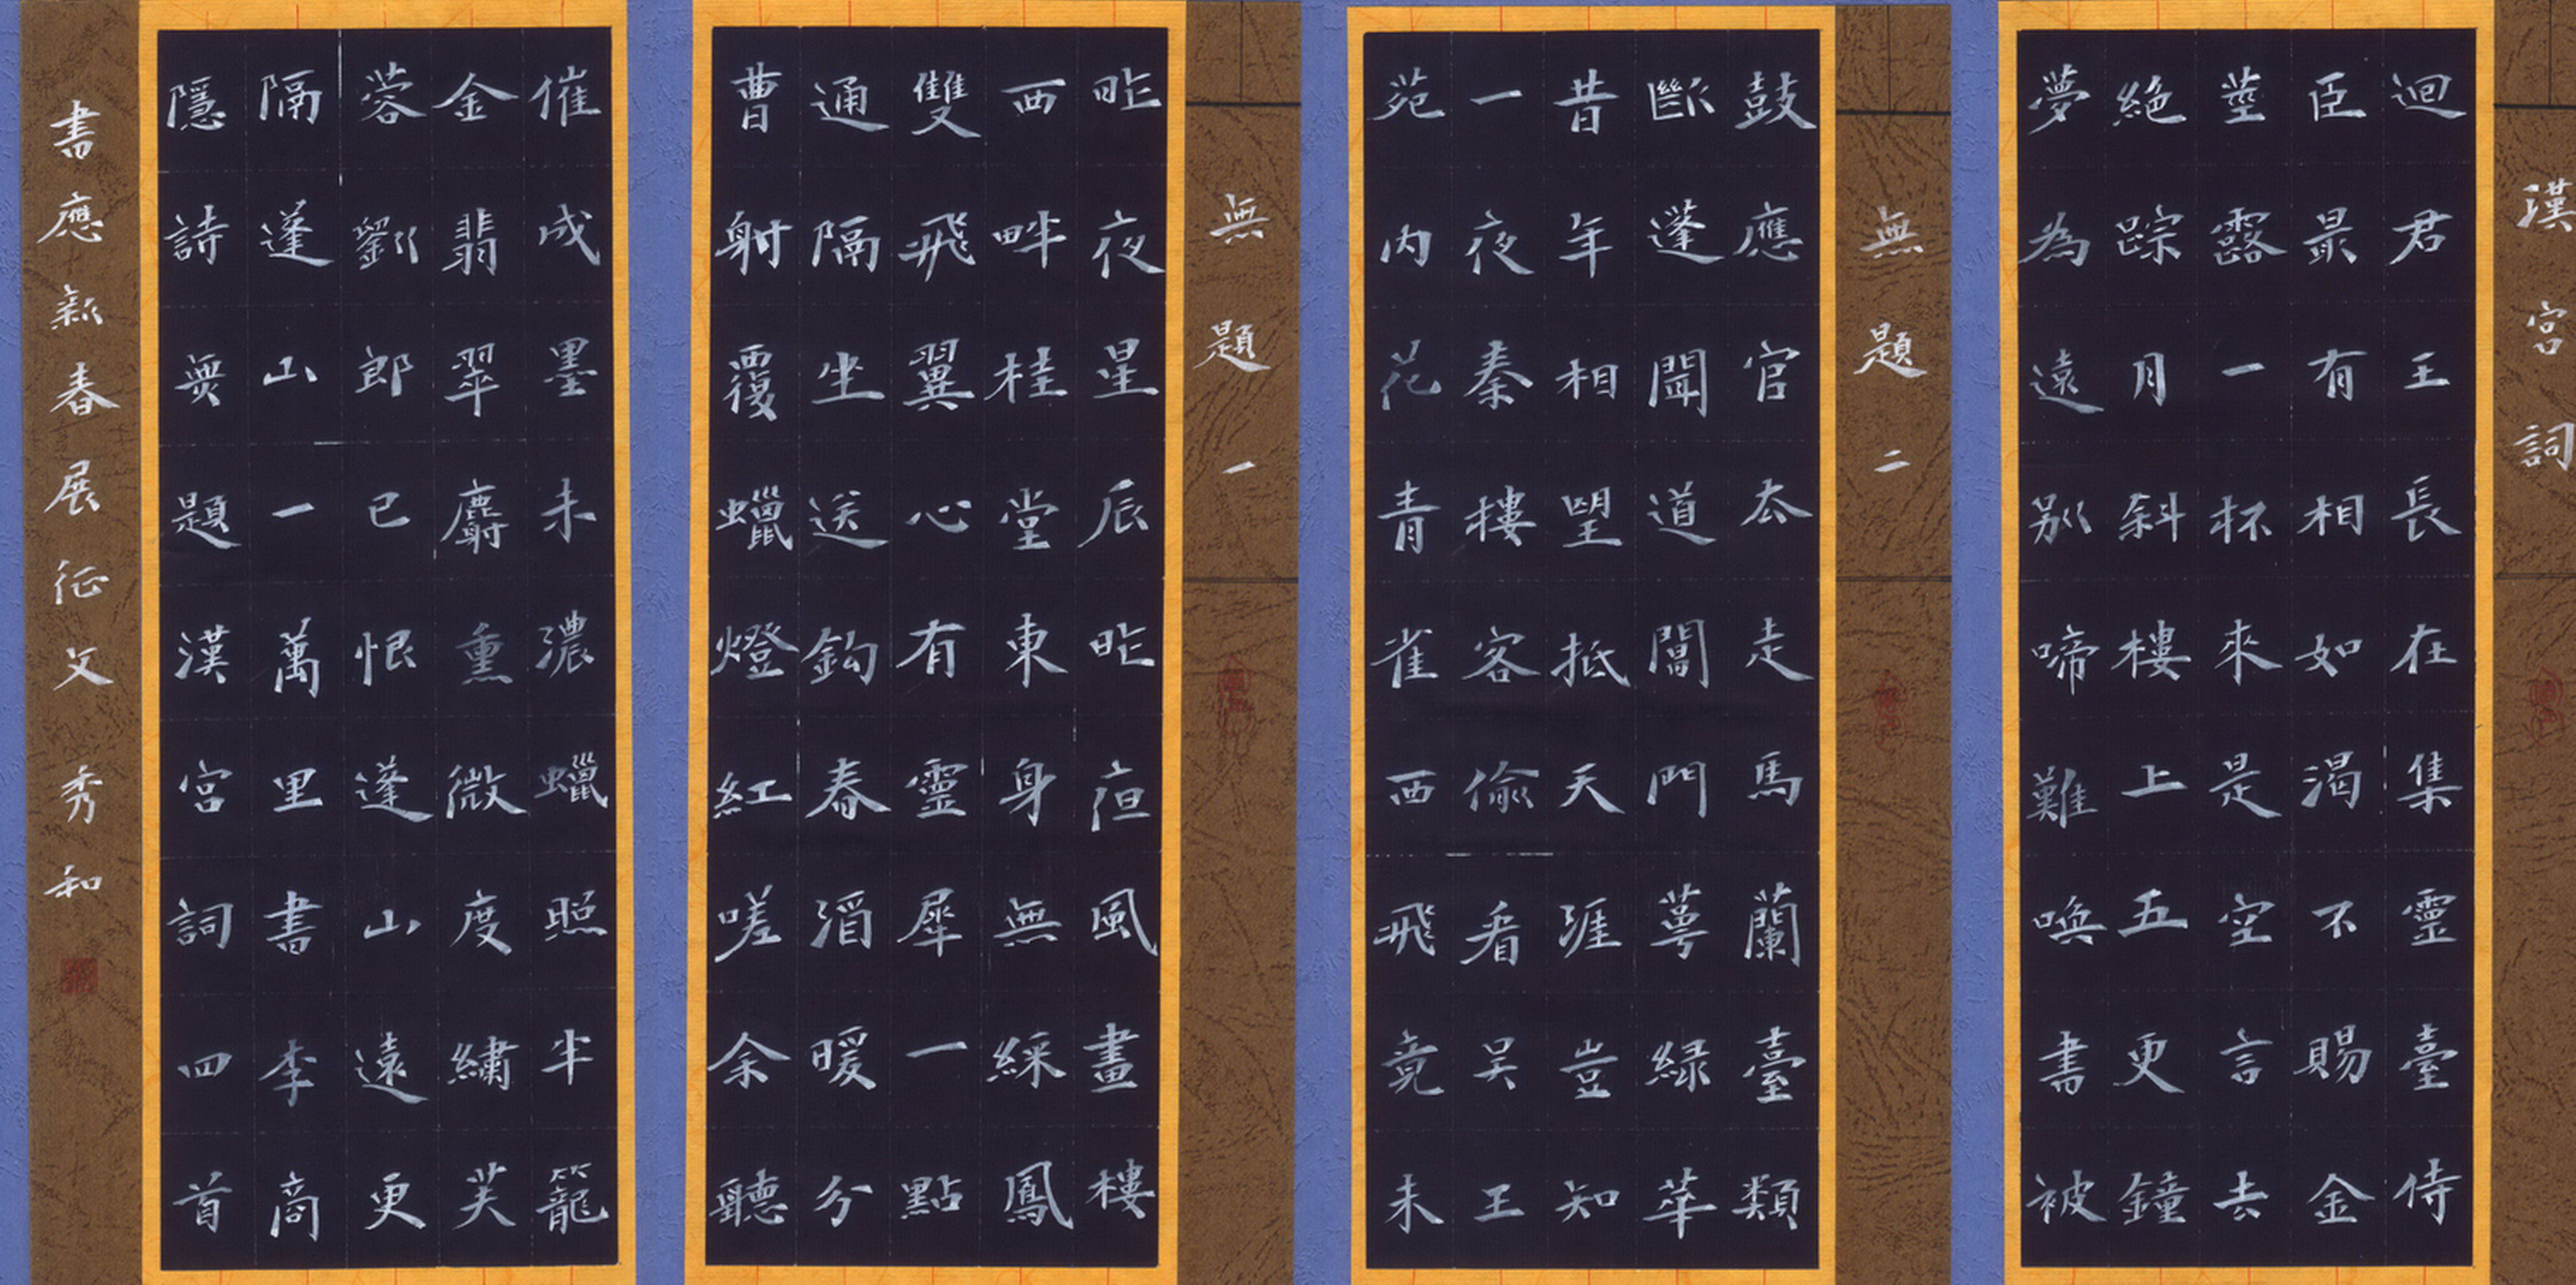 漢宮詞
迴君王長在集靈臺侍
臣最有相如渴不賜金
莖露一杯來是空言去
絕踪月斜樓上五更鐘
夢為遠別啼難喚書被
無題二
鼓應官去走馬蘭臺類
斷蓬聞道閶門萼綠華
昔年相望抵天涯豈知
一夜秦樓客偷看吳王
苑內花青雀西飛竟未
無題一
昨夜星辰昨夜風畫樓
西畔桂堂東身無綵鳳
雙飛翼心有靈犀一點
通隔坐送鈎春酒暖分
曹射覆蠟燈紅嗟余聽
催成墨未濃蠟照半籠
金翡翠麝熏微度繡芙
蓉劉郎已恨蓬山遠更
隔蓬山一萬里書李商
隱詩無題漢宮詞四首
書應新春展征文秀和